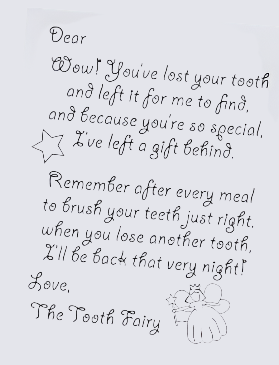 Dear
Wow! You've lost your tooth
and left it for me to find,
and because you're so special,
I've left a gift behind.
Remember after every meal
to brush your teeth just right.
when you lose another tooth,
I'll be back that very night!
Love,
The Tooth Fairy